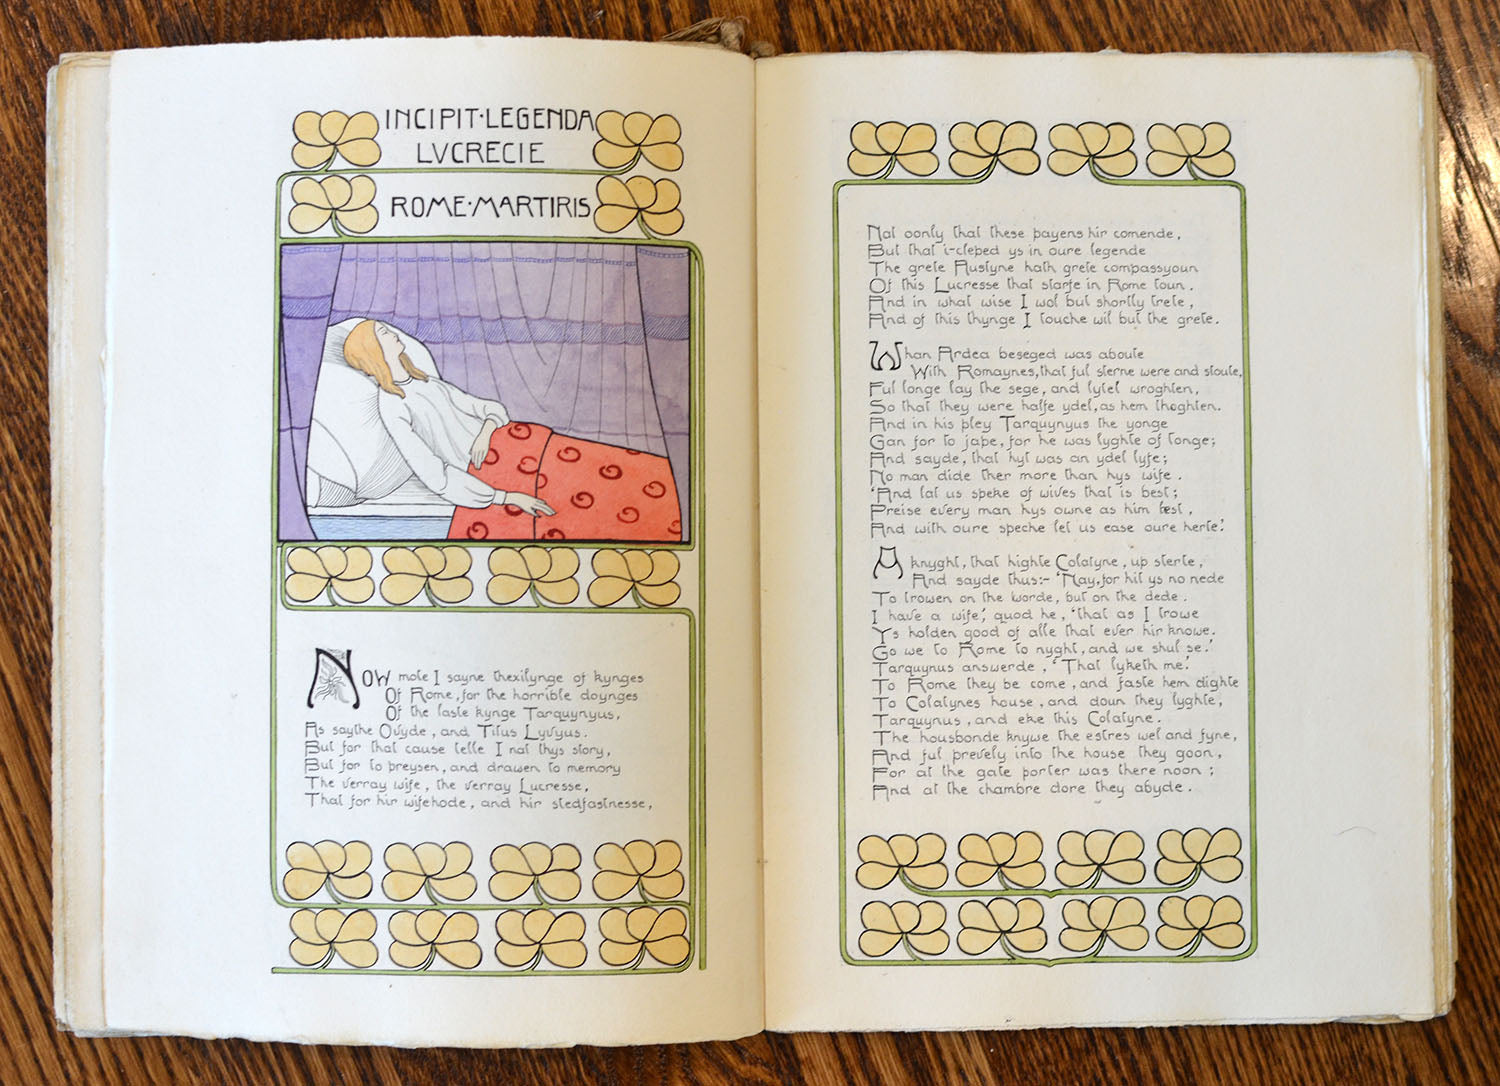 INCIPIT·LEGENDA
LVCRECIE
ROME·MARTIRIS
Now mote I sayne thexilynge of kynges
Of Rome, for the horrible doynges
Of the laste kynge Tarquynyus,
As saythe Ovyde, and Titus Lyvyus.
But for that cause telle I nat thys story,
But for to preysen, and drawen to memory
The verray wife, the verray Lucresse,
That for hir wifehode, and hir stedfastnesse,
Nat oonly that these payens hir comende,
But that i-cleped ys in oure legende
The grete Austyne hath grete compassyoun
Of this Lucresse that starfe in Rome toun.
And in what wise I wol but shortly trete,
And of this thynge I touche wil but the grete.
Whan Ardea beseged was aboute
With Romaynes, that ful sterne were and stoute,
Ful longe lay the sege, and lytel wroghten,
So that they were halfe ydel, as hem thoghten.
And in his pley Tarquynyus the yonge
Gan for to jape, for he was lyghte of tonge;
And sayde, that hyt was an ydel lyfe;
No man dide ther more than hys wife.
'And lat us speke of wives that is best;
Preise every man hys owne as him lest,
And with oure speche let us ease oure herte.'
A knyght, that highte Colatyne, up sterte,
And sayde thus:- 'Nay, for hit ys no nede
To trowen on the worde, but on the dede.
I have a wife,' quod he, 'that as I trowe
Ys holden good of alle that ever hir knowe.
Go we to Rome to nyght, and we shul se.'
Tarquynus answerde, 'That lyketh me.'
To Rome they be come, and faste hem dighte
To Colatynes house, and doun they lyghte,
Tarquynus, and eke this Colatyne.
The housbonde knywe the estres wel and fyne,
And ful prevely into the house they goon,
For at the gate porter was there noon;
And at the chambre dore they abyde.